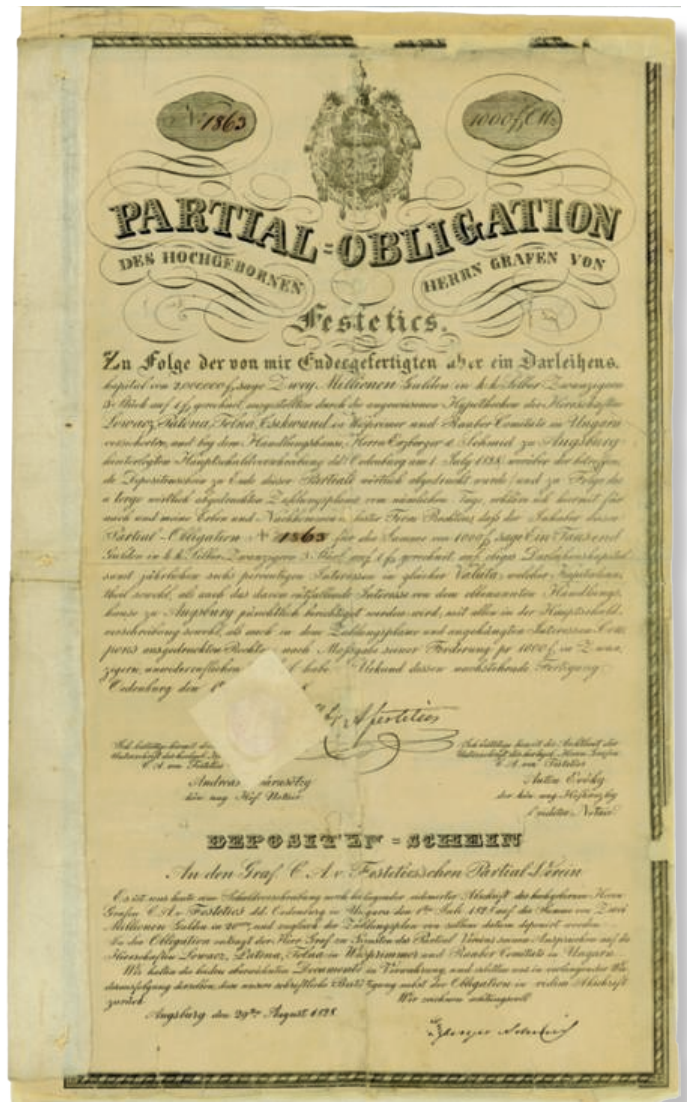 No 1863
1000 f CMz
PARTIAL=OBLIGATION
DES HOCHGEBORNEN HERRN GRAFEN VON
Festetics.
Zu Folge der von mir Endesgefertigten über ein Darleihens.
kapital von 2,000000 f, sage Zwey Millionen Gulden in k. k. Silber Zwanzigern
3 Stück auf 1 f, gerechnet, ausgestellten durch die angewiesenen Hypotheken der Herrschaften
Lowarz, Patona, Tolna, Csikwand, in Wesprimer und Raaber Comitate in Ungarn
versicherten, und bey dem Handlungshause, Herrn Erzberger & Schmid zu Augsburg
hinterlegten Hauptschuldverschreibung dd. Oedenburg am 1. July 1828, worüber der betreffen,
de Depositenschein zu Ende dieser Partiale wörtlich abgedruckt wurde, und zu Folge des
a tergo wörtlich abgedruckten Zahlungsplanes vom nämlichen Tage, erkläre ich hiermit für
mich und meine Erben und Nachkommen in bester Form Rechtens, daß der Inhaber dieser
Partial-Obligation No 1863 für die Summe von 1000 f, sage Ein Tausend
Gulden in k. k. Silber Zwanzigern 3 Stück auf 1 f, gerechnet, auf obiges Darleihenskapital
samt jährlichen sechs percentigen Interessen in gleicher Valuta, welcher Kapitalsan,
theil sowohl, als auch das davon entfallende Interesse von dem obbenannten Handlungs,
hause zu Augsburg pünktlich berichtiget werden wird, mit allen in der Hauptschuld,
verschreibung sowohl, als auch in dem Zahlungsplane und angehängten Interessen-Cou,
pons ausgedruckten Rechten nach Maßgabe seiner Forderung pr 1000 f, in Zwan,
zigern, unwiederruflichen habe. Urkund dessen nachstehende Fertigung
Oedenburg den 1
A festetics
Ich bestättige hiemit die
Unterschrift des hochgeb.
C. A. von Festetics
Andreas
kön. ung. Hof Notair
Ich bestättige hiemit die Aechtheit der
Unterschrift des hochgeb. Herrn Grafen
C. A. von Festetics
Anton
der kön. ung. Hofkanzley
Notair
DEPOSITEN=SCHEIN
An den Graf. C. A. v. Festeticsschen Partial-Verein
Es ist uns heute eine Schuldverschreibung nach beiliegender vidimirter Abschrift des hochgebornen Herrn
Grafen C. A. v. Festetics dd. Oedenburg in Ungarn den 1ten Juli 1828 auf die Summe von Zwei
Millionen Gulden in 20gern und zugleich der Zahlungsplan von selbem datum deponirt worden.
In der Obligation entsagt der Herr Graf zu Gunsten des Partial Vereins seinen Ansprüchen auf die
Herrschaften Lowarz, Patona, Tolna in Wesprimmer und Raaber Comitate in Ungarn.
Wir halten die beiden obenerwähnten Documente in Verwahrung, und
dieselben, diese unsere schriftliche Bestättigung nebst der Obligation in vidim. Abschrift
zurück.
Wir zeichnen achtungsvoll
Augsburg den 29ten August 1828.
Erzberger & Schmid